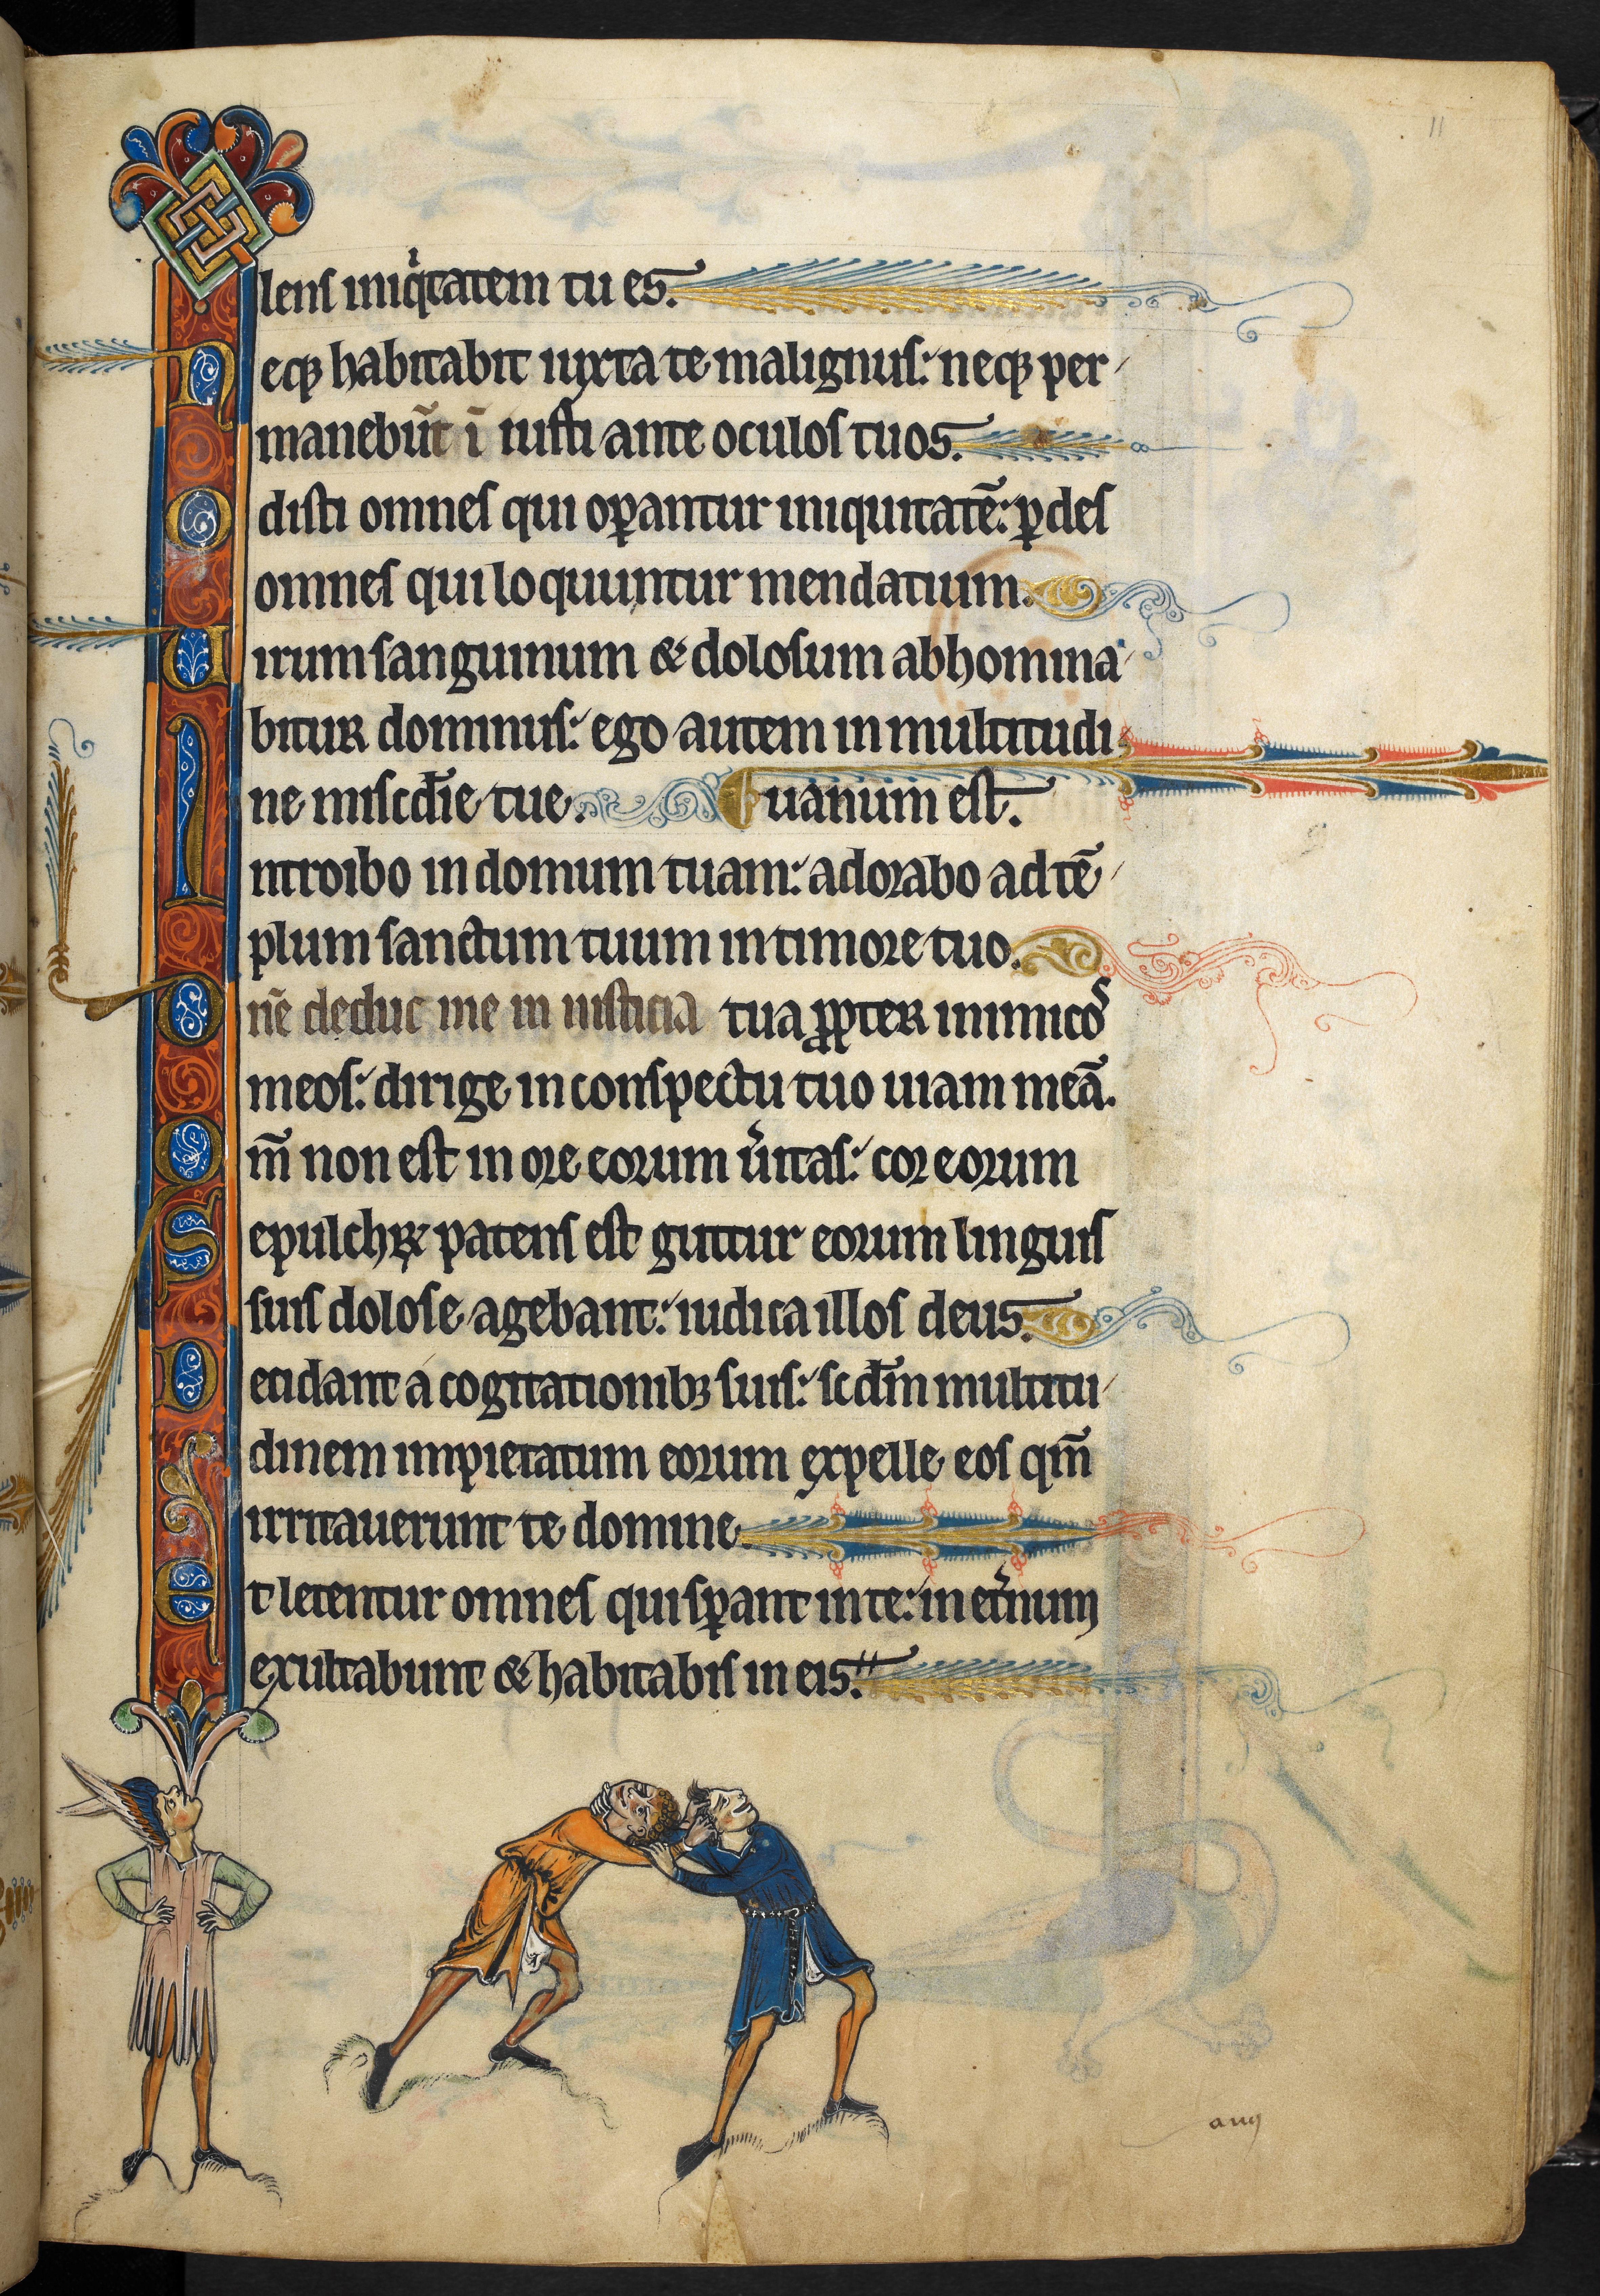 11
lens iniq̍tatem tu es.
Neqꝫ habitabit iuxta te malignus: neqꝫ per
manebūt ī iusti ante oculos tuos.
Odisti omnes qui oꝑantur iniquitatē: ꝑdes
omnes qui loquuntur mendatium.
Uirum sanguinum & dolosum abhomina
bitur dominus: ego autem in multitudi
ne misc̄die tue. tuanum est.
Introibo in domum tuam: adorabo ad tē
plum sanctum tuum in timore tuo.
Dn̄e deduc me in iusticia tua ꝓpter inimicos
meos: dirige in conspectu tuo uiam meā.
Qm̄ non est in ore eorum u̍itas: cor eorum
Sepulchꝝ patens est guttur eorum linguis
suis dolose agebant: iudica illos deus.
Decidant a cogitationibꝫ suis: scd̄m multitu
dinem impietatum eorum expelle eos qm̄
irritauerunt te domine.
Et letentur omnes qui sꝑant in te: in et̍num
exultabunt & habitabis in eis.